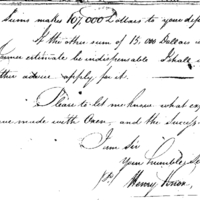 Sums makes 107,000 Dollars to your dep
If the other sum of 15,000 Dollars
be indispensable I shall
apply for it.
Please to let me know what ex
made with Oxen, and the success
I am Sir
Your humble Se
Henry Knox